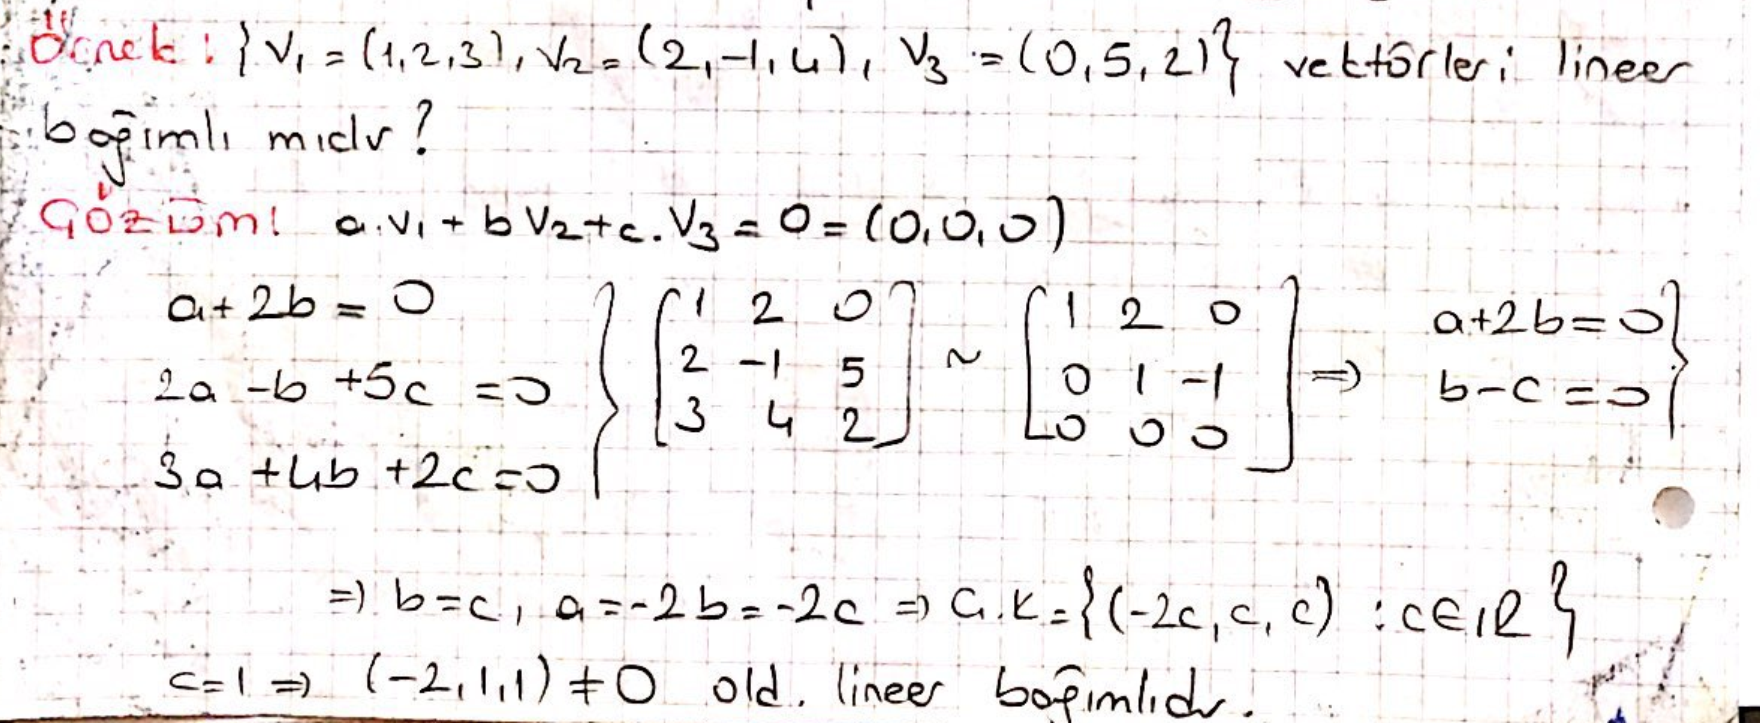 Örnek: {V₁ = (1,2,3), V₂ = (2,-1,4), V₃ = (0,5,2)} vektörleri lineer
bağımlı mıdır?
Çözüm: a.V₁ + bV₂ + c.V₃ = 0 = (0,0,0)
a + 2b = 0
2a - b + 5c = 0
3a + 4b + 2c = 0
[1 2 0
2 -1 5
3 4 2]
~
[1 2 0
0 1 -1
0 0 0]
⇒
a+2b=0
b-c=0}
⇒ b=c, a=-2b=-2c ⇒ Ç.K={(-2c, c, c) : c∈IR}
c=1 ⇒ (-2,1,1) ≠ 0 old. lineer bağımlıdır.